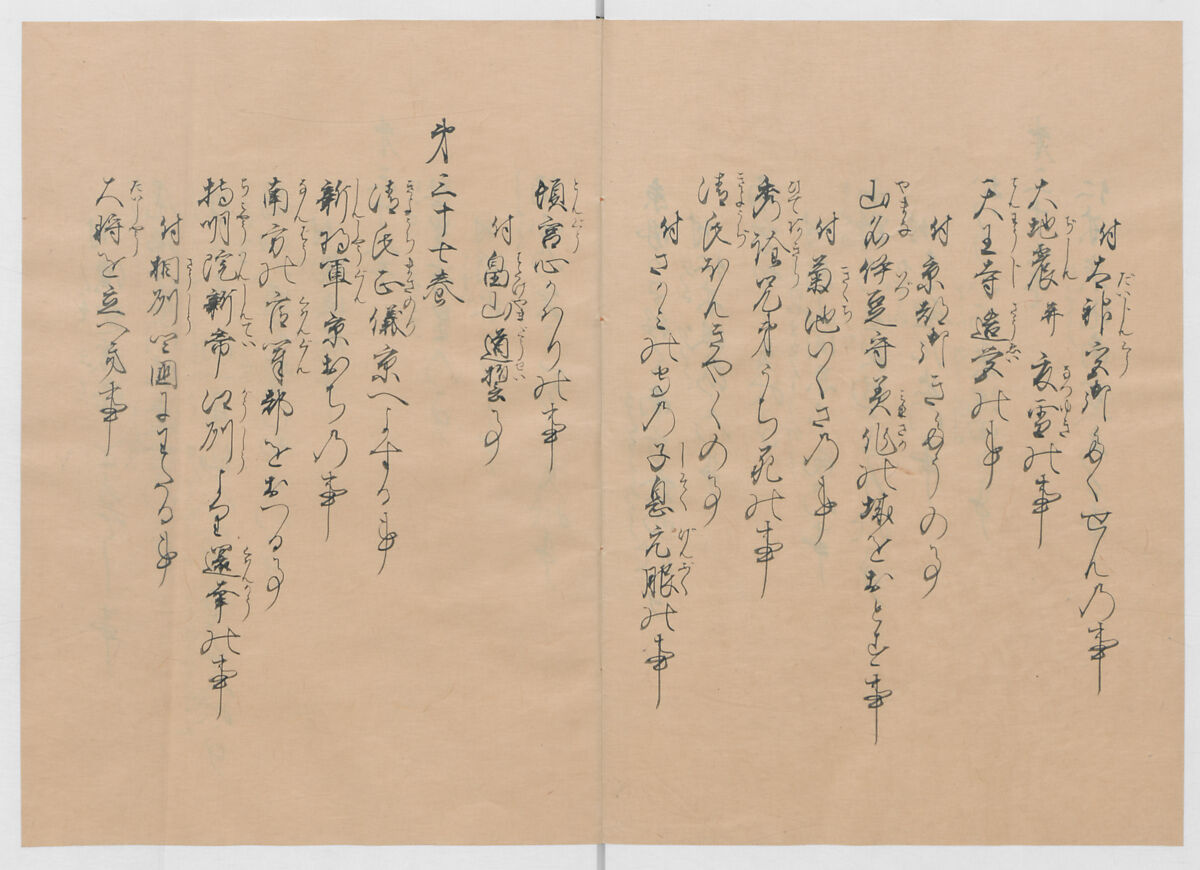 付太神宮御たくせん乃事
大地震并夏雪の事
天王寺造営の事
付京都御きたうの事
山名伊豆守美作の城をおとす事
付菊池いくさ乃事
秀詮兄弟うち死の事
清氏ほんきやくの事
付さかミの守乃子息元服の事
頓宮心かハりの事
付畠山道誓事
第三十七巻
清氏正儀京へよする事
新将軍京おち乃事
南方の官軍都をおつる事
持明院新帝江州より還幸の事
付相州四国にわたる事
大将を立へき事